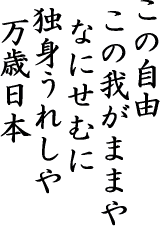 この自由
この我がままや
なにせむに
独身うれしや
万歳日本